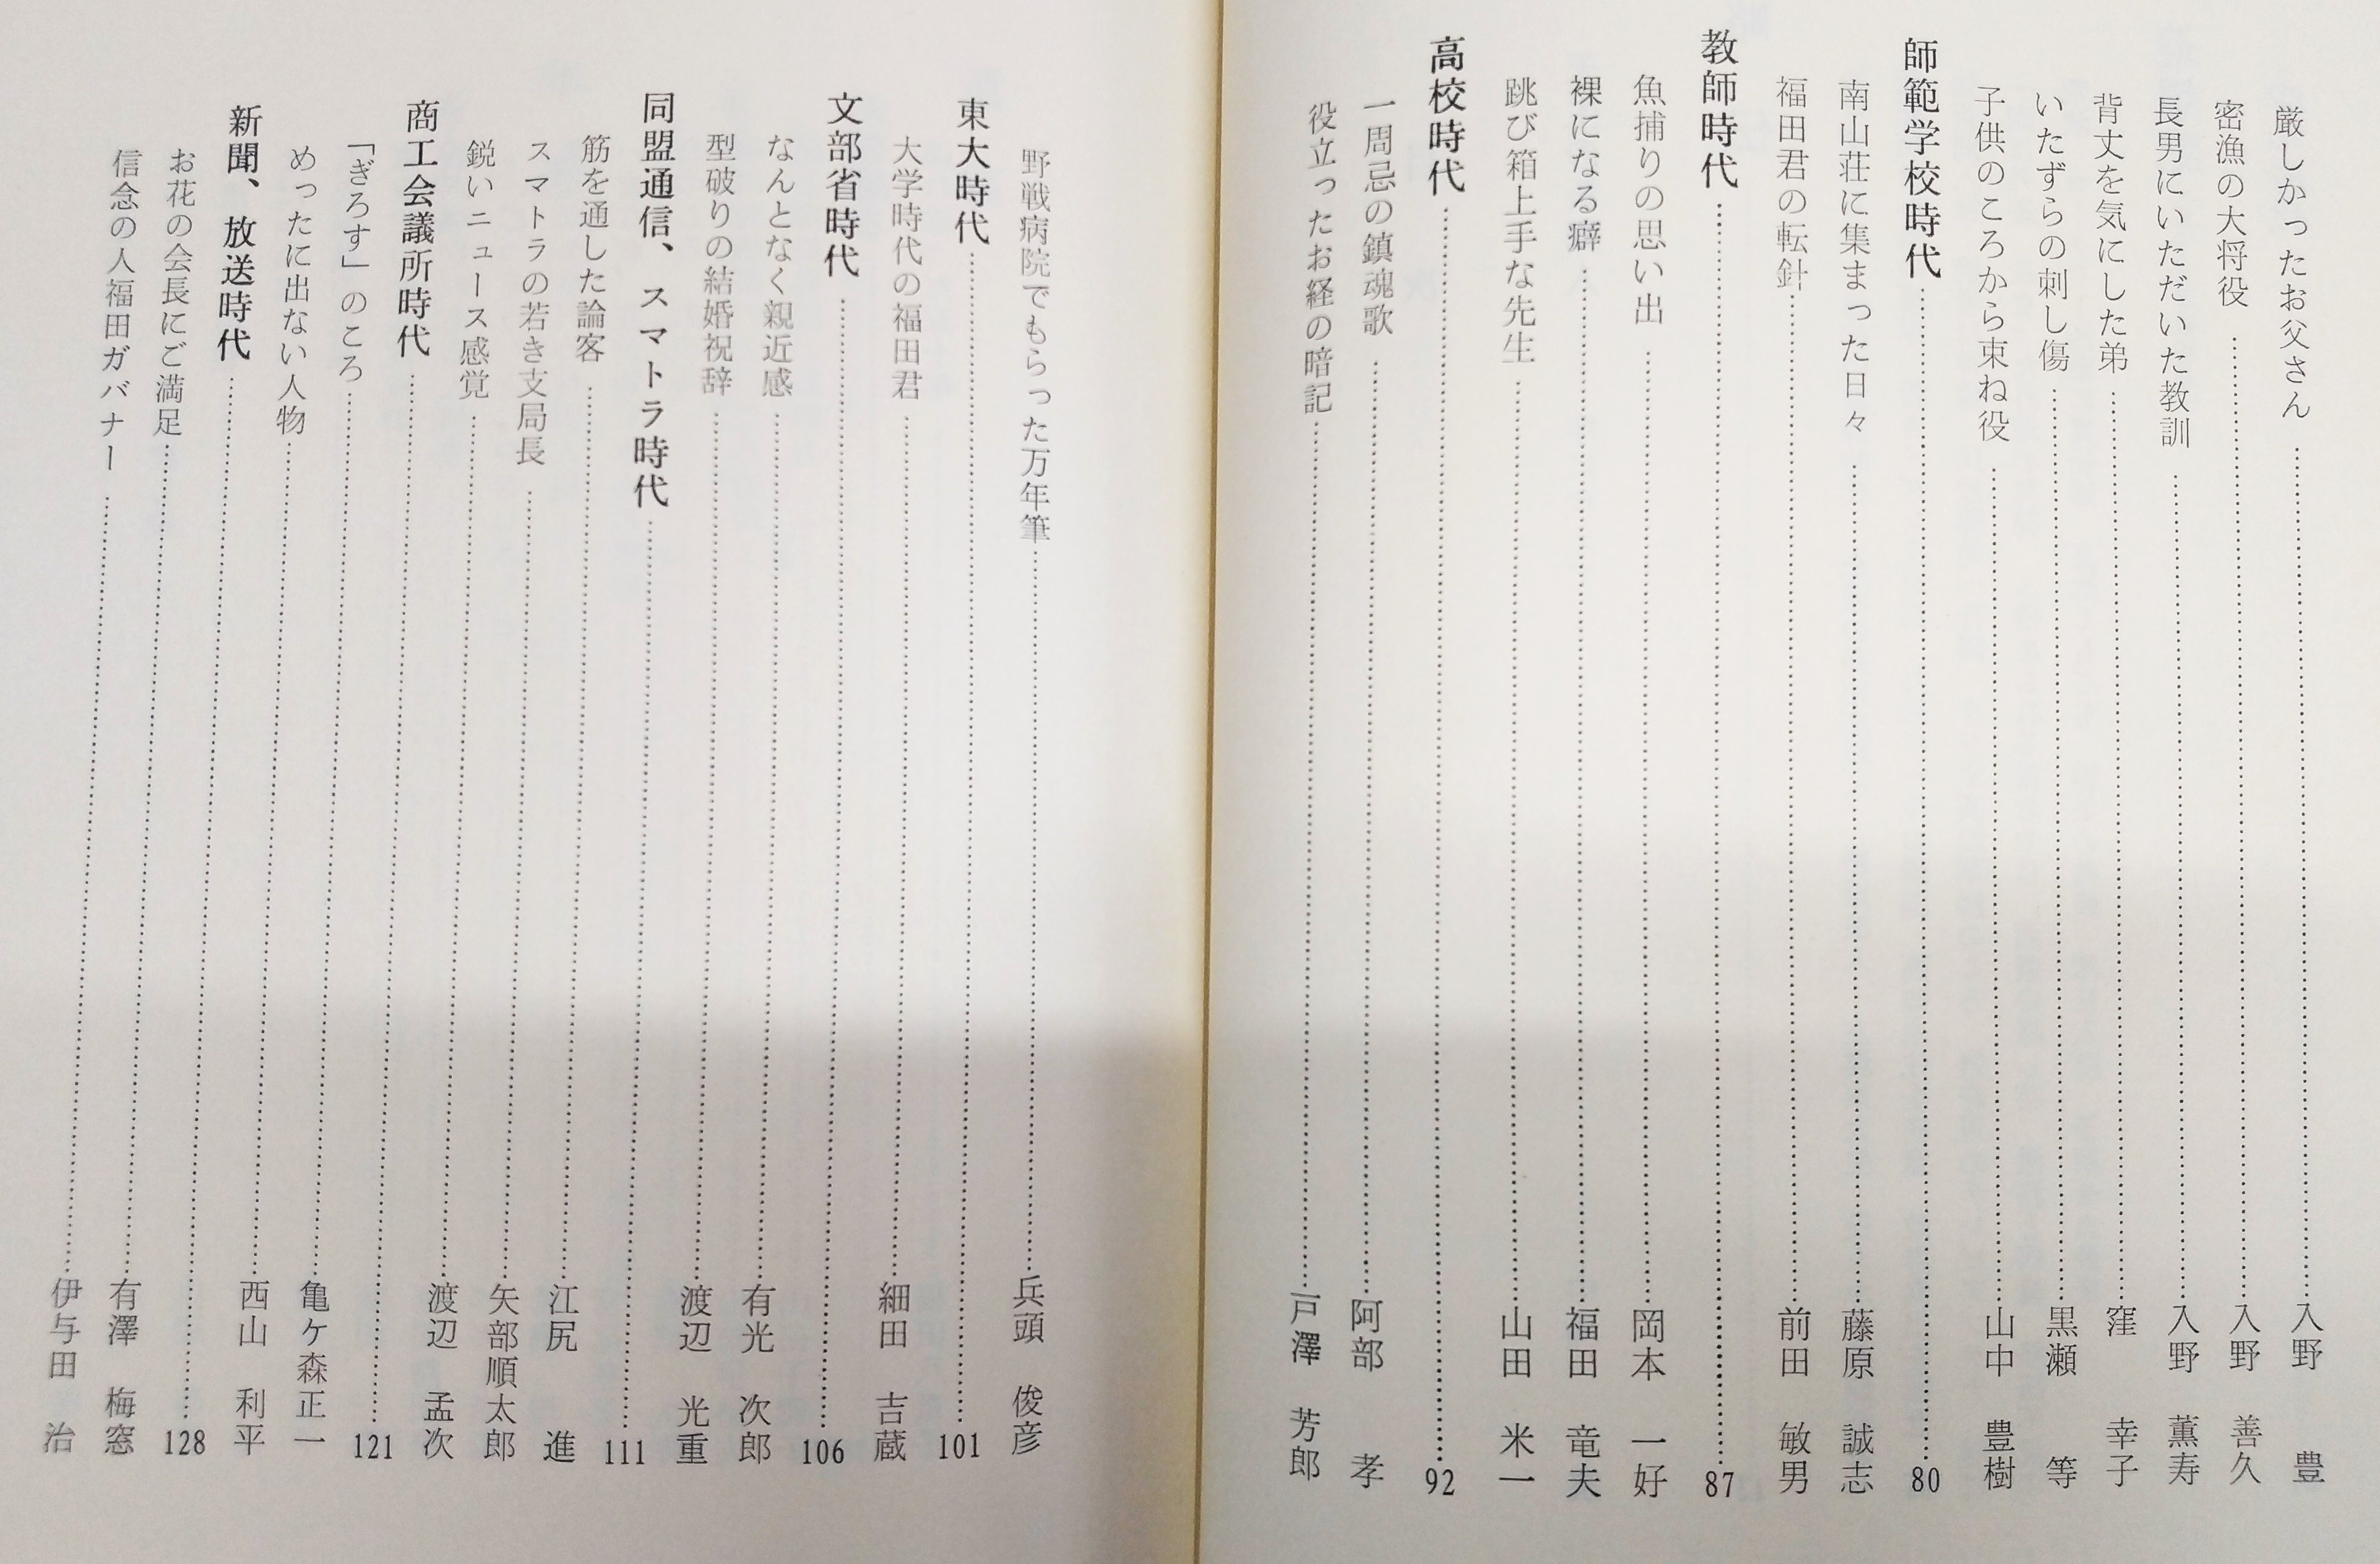 厳しかったお父さん……入野　豊
密漁の大将役……入野　善久
長男にいただいた教訓……入野　薫寿
背丈を気にした弟……窪　幸子
いたずらの刺し傷……黒瀬　等
子供のころから束ね役……山中　豊樹
師範学校時代……80
南山荘に集まった日々……藤原　誠志
福田君の転針……前田　敏男
教師時代……87
魚捕りの思い出……岡本　一好
裸になる癖……福田　竜夫
跳び箱上手な先生……山田　米一
高校時代……92
一周忌の鎮魂歌……阿部　孝
役立ったお経の暗記……戸澤　芳郎
野戦病院でもらった万年筆……兵頭　俊彦
東大時代……101
大学時代の福田君……細田　吉蔵
文部省時代……106
なんとなく親近感……有光　次郎
型破りの結婚祝辞……渡辺　光重
同盟通信、スマトラ時代……111
筋を通した論客……江尻　進
スマトラの若き支局長……矢部順太郎
鋭いニュース感覚……渡辺　孟次
商工会議所時代……121
「ぎろす」のころ……亀ケ森正一
めったに出ない人物……西山　利平
新聞、放送時代……128
お花の会長にご満足……有澤　梅窓
信念の人福田ガバナー……伊与田　治